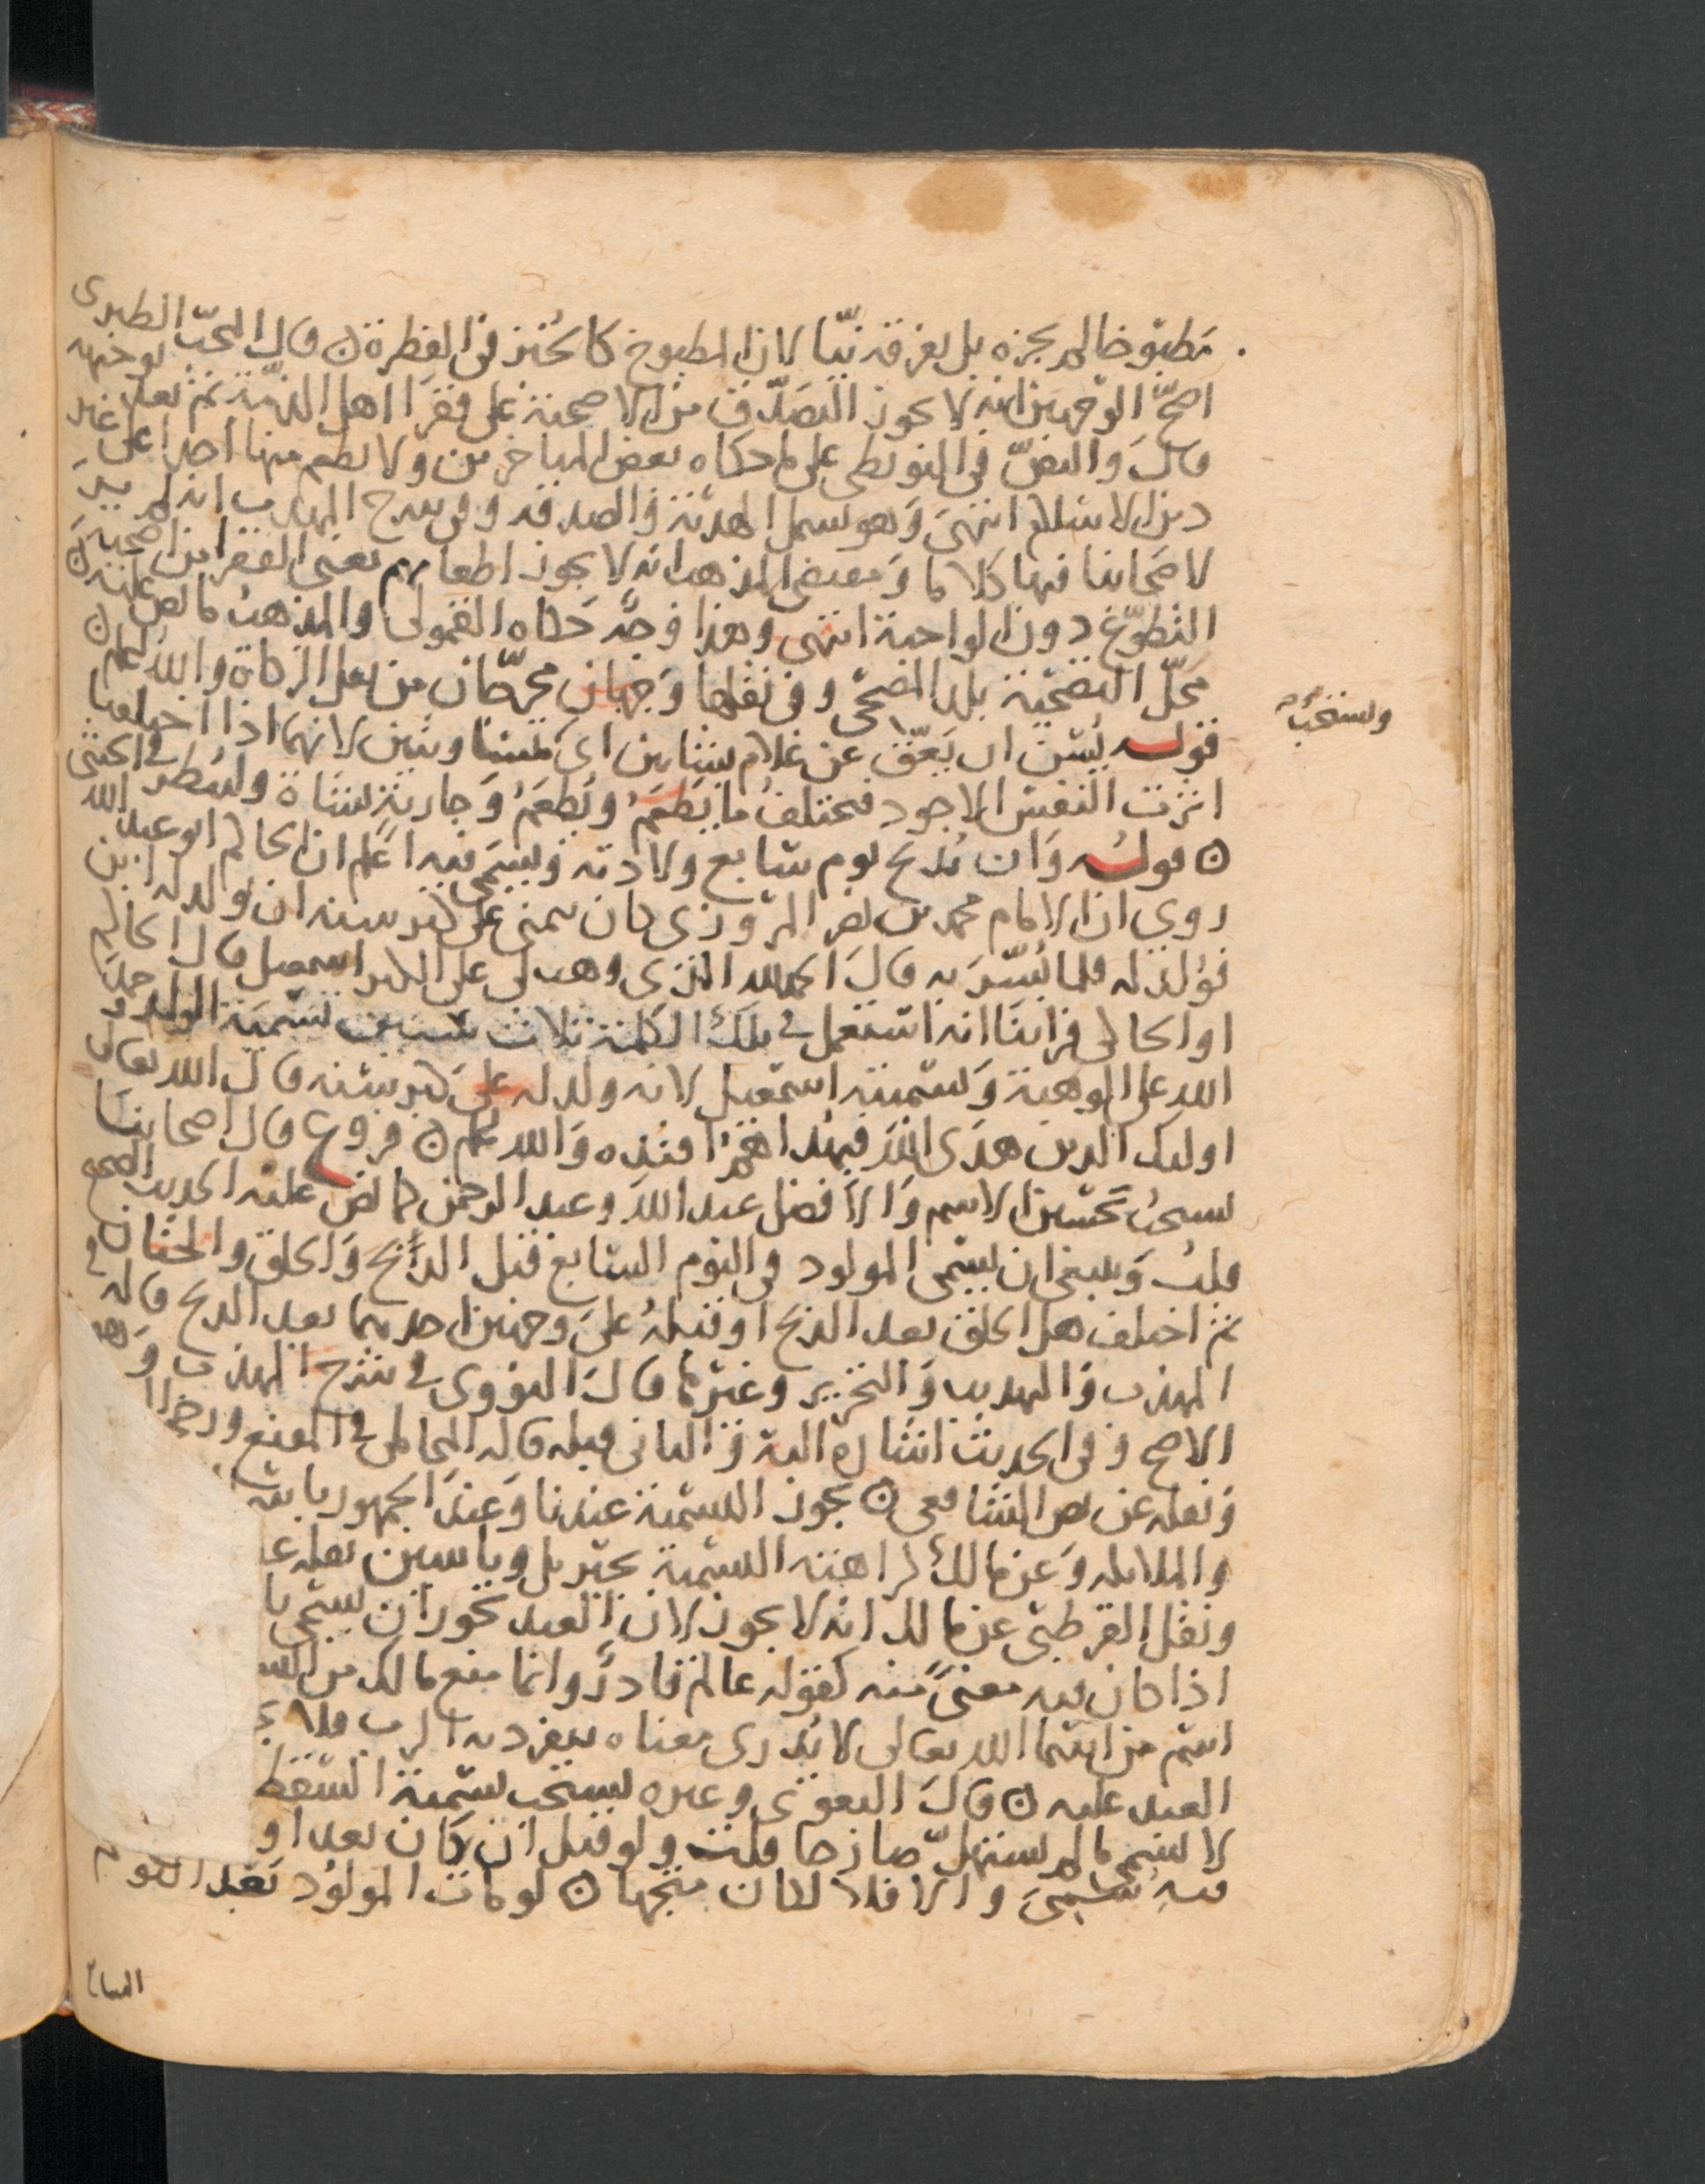 مطبوخا لم يجزه بل يفرقه نيّا لان المطبوخ كالخبز في الفطرة ٥ قال المحبّ الطبرى
اصحّ الوجهين انه لا يجوز التصدّق من الاضحية على فقرا اهل الذمّة ثم بعد توجيهه
قال والنصّ في البويطى على ما حكاه بعض المتاخرين ولا يطعم منها احدا على غير
دين الاسلام انتهى وهو يشمل الهدية والصدقه وفي شرح المهذب انه لم ير
لاصحابنا فيها كلاما ومقتضى المذهب انه لا يجوز اطعامهم يعنى الفقرا من اضحية
التطوّع دون الواجبة انتهى وهذا وجه حكاه القمولى والمذهب ما نص عليه ٥
محلّ التضحية بلد المضحّى وفي نقلها وجهان مخرّجان من نقل الزكاة والله اعلم ٥
قوله يُسَنّ ان يعقّ عن غلام بشاتين اى متساويتين لانهما اذا اختلفتا
اثرت النفس الاجود فيختلف ما يَطعَم ويُطعِم وجارية بشاة ولينظر في الخنثى
٥ قوله وان تذبح يوم سابع ولادته ويسمى فيه اعلم ان الحاكم ابو عبد الله
روى ان الامام محمد بن نصر المروزى كان يتمنى على كبر سنه ان يولد له ابن
فولد له فلما بُشّر به قال الحمد لله الذى وهب لى على الكبر اسمعيل قال الحاكم
او الحاكى فراينا انه استعمل في تلك الكلمة ثلاث سنن تسمية الولد وحمد
الله على الموهبة وتسميته اسمعيل لانه ولد له على كبر سنه قال الله تعالى
اوليك الدين هدى الله فبهداهم اقتده والله اعلم ٥ فروع قال اصحابنا
يستحب تحسين الاسم والافضل عبد الله وعبد الرحمن كما نص عليه الحديث الصحيح
قلت وينبغى ان يسمى المولود في اليوم السابع قبل الذبح والحلق والختان
ثم اختلف هل الحلق بعد الذبح او قبله على وجهين احدهما بعد الذبح قاله في
المهذب والتهذيب والتحرير وغيرها قال النووى في شرح المهذب وهو
الاصح وفي الحديث اشارة اليه والثانى قبله قاله المحاملى في المقنع ورجحه
ونقله عن نص الشافعى ٥ تجوز التسمية عندنا وعند الجمهور باسم
والملايكه وعن مالك كراهته التسمية بجبريل وياسين نقله
ونقل القرطبى عن مالك انه لا يجوز لان العبد يجوز ان يسمى با
اذا كان فيه معنى منه كقوله عالم قادر وانما منع مالك من
اسم من اسما الله تعالى لا يُدرى معناه ينفرد به الرب فلا
العبد عليه ٥ قال البغوى وغيره يستحب تسمية السقط
لا يسمى ما لم يستهلّ صارخا قلت ولو قيل ان كان بعد او
فيه سمى والا فلا لكان متجها ٥ لو مات المولود بعد اليوم
ويستحب
السابع